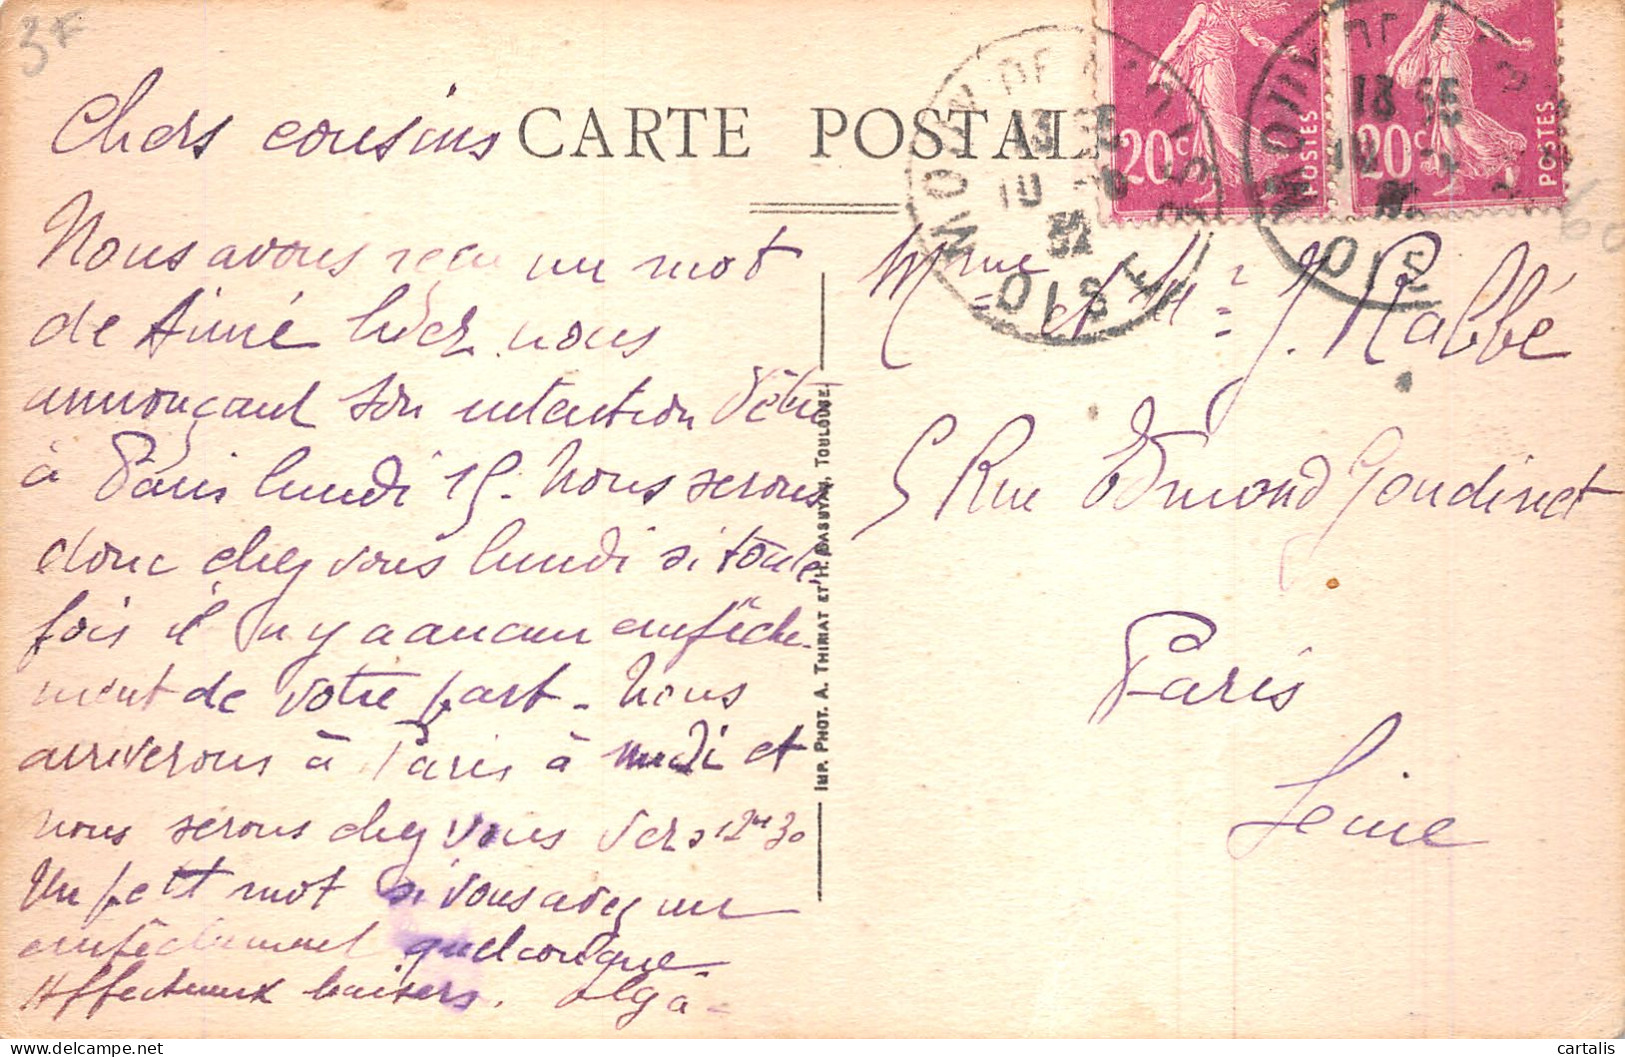 3F
CARTE POSTALE
Chers cousins
Nous avons reçu un mot
de Aimé hier nous
annonçant son intention d'être
à Paris lundi 15. Nous serons
donc chez vous lundi si toute
fois il n'y a aucun empêche-
ment de votre part - Nous
arriverons à Paris à midi et
nous serons chez vous vers 12H30
Un petit mot si vous avez un
empêchement quelconque.
Affectueux baisers. Olga-
IMP. PHOT. A. THIRIAT ET H. BASUYAU, TOULOUSE
20c POSTES
20c POSTES
OISE
18 55
32
60
Mme et Mr J. Rabbé
5 Rue Edmond Gondinet
Paris
Seine
cartalis